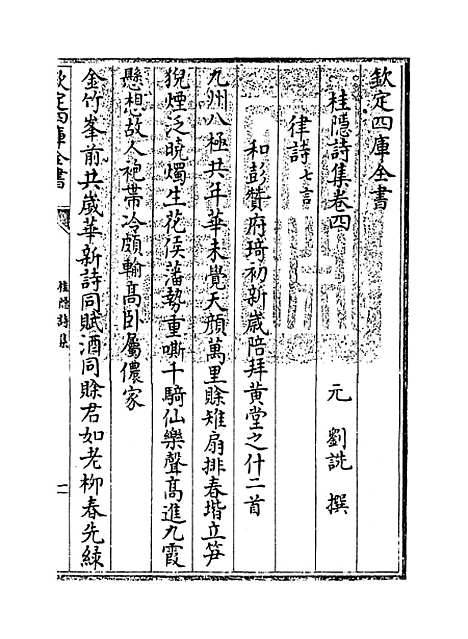 欽定四庫全書
桂隠詩集卷四
元 劉詵 撰
律詩七言
和彭贊府琦初新歳陪拜黄堂之什二首
九州八極共年華未覺天顔萬里賖雉扇排春堦立笋
猊煙泛曉燭生花侯藩勢重嘶千騎仙樂聲髙進九霞
懸想故人袍帶冷頗輸髙卧屬儂家
金竹峯前共歳華新詩同賦酒同賖君如老柳春先緑
欽定四庫全書
桂隠詩集
一